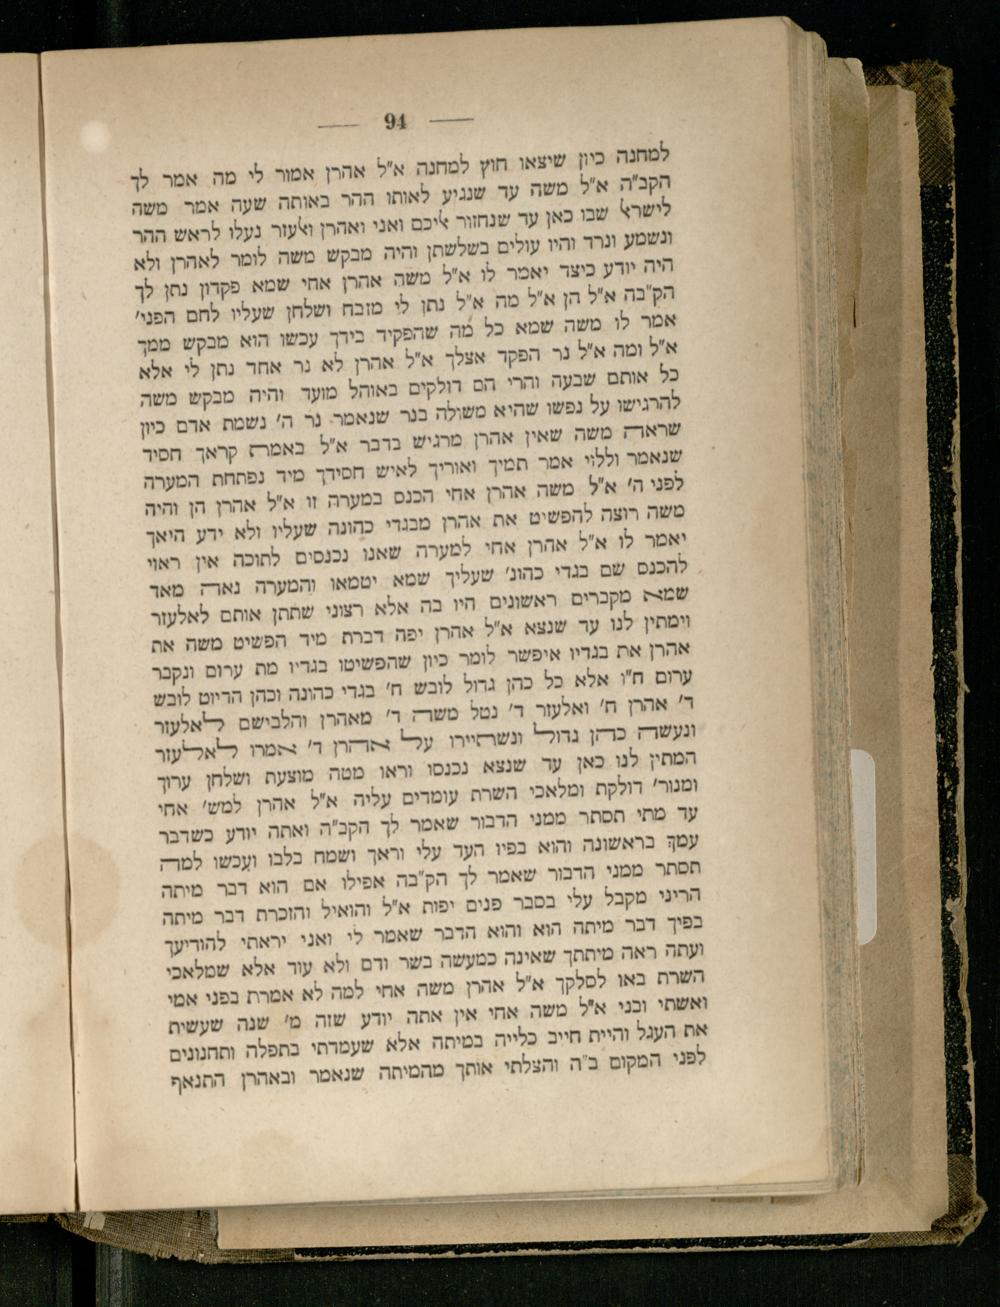 — 94 —
למחנה כיון שיצאו חוץ למחנה א"ל אהרן אמור לי מה אמר לך
הקב"ה א"ל משה עד שנגיע לאותו ההר באותה שעה אמר משה
לישראל שבו כאן עד שנחזור אליכם ואני ואהרן ואלעזר נעלו לראש ההר
ונשמע ונרד והיו עולים בשלשתן והיה מבקש משה לומר לאהרן ולא
היה יודע כיצד יאמר לו א"ל משה אהרן אחי שמא פקדון נתן לך
הק"בה א"ל הן א"ל מה א"ל נתן לי מזבח ושלחן שעליו לחם הפני'
אמר לו משה שמא כל מה שהפקיד בידך עכשו הוא מבקש ממך
א"ל ומה א"ל נר הפקד אצלך א"ל אהרן לא נר אחד נתן לי אלא
כל אותם שבעה והרי הם דולקים באוהל מועד והיה מבקש משה
להרגישו על נפשו שהיא משולה בנר שנאמר נר ה' נשמת אדם כיון
שראה משה שאין אהרן מרגיש בדבר א"ל באמרת קראך חסיד
שנאמר וללוי אמר תמיך ואוריך לאיש חסידך מיד נפתחת המערה
לפני ה' א"ל משה אהרן אחי הכנס במערה זו א"ל אהרן הן והיה
משה רוצה להפשיט את אהרן מבגדי כהונה שעליו ולא ידע היאך
יאמר לו א"ל אהרן אחי למערה שאנו נכנסים לתוכה אין ראוי
להכנס שם בגדי כהונ' שעליך שמא יטמאו והמערה נאה מאד
שמא מקברים ראשונים היו בה אלא רצוני שתתן אותם לאלעזר
וימתין לנו עד שנצא א"ל אהרן יפה דברת מיד הפשיט משה את
אהרן את בגדיו איפשר לומר כיון שהפשיטו בגדיו מת ערום ונקבר
ערום ח"ו אלא כל כהן גדול לובש ח' בגדי כהונה וכהן הדיוט לובש
ד' אהרן ח' ואלעזר ד' נטל משה ד' מאהרן והלבישם לאלעזר
ונעשה כהן גדול ונשתיירו על אהרן ד' אמרו לאלעזר
המתין לנו כאן עד שנצא נכנסו וראו מטה מוצעת ושלחן ערוך
ומנור' דולקת ומלאכי השרת עומדים עליה א"ל אהרן למש' אחי
עד מתי תסתר ממני הדבור שאמר לך הקב"ה ואתה יודע כשדבר
עמך בראשונה והוא בפיו העד עלי וראך ושמח בלבו ועכשו למה
תסתר ממני הדבור שאמר לך הק"בה אפילו אם הוא דבר מיתה
הריני מקבל עלי בסבר פנים יפות א"ל והואיל והזכרת דבר מיתה
בפיך דבר מיתה הוא והוא הדבר שאמר לי ואני יראתי להודיעך
ועתה ראה מיתתך שאינה כמעשה בשר ודם ולא עוד אלא שמלאכי
השרת באו לסלקך א"ל אהרן משה אחי למה לא אמרת בפני אמי
ואשתי ובני א"ל משה אחי אין אתה יודע שזה מ' שנה שעשית
את העגל והיית חייב כלייה במיתה אלא שעמדתי בתפלה ותחנונים
לפני המקום ב"ה והצלתי אותך מהמיתה שנאמר ובאהרן התנאף